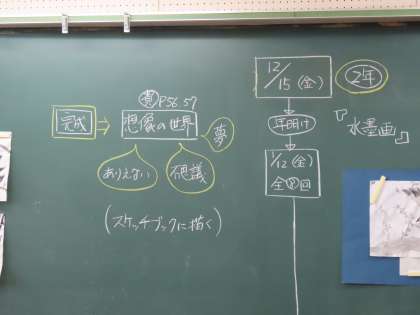 資 P56 57
完成 ⇒ 想像の世界
夢
ありえない
不思議
(スケッチブックに描く)
12/15(金)
2年
年明け
1/12(金)
全⑧回
『水墨画』